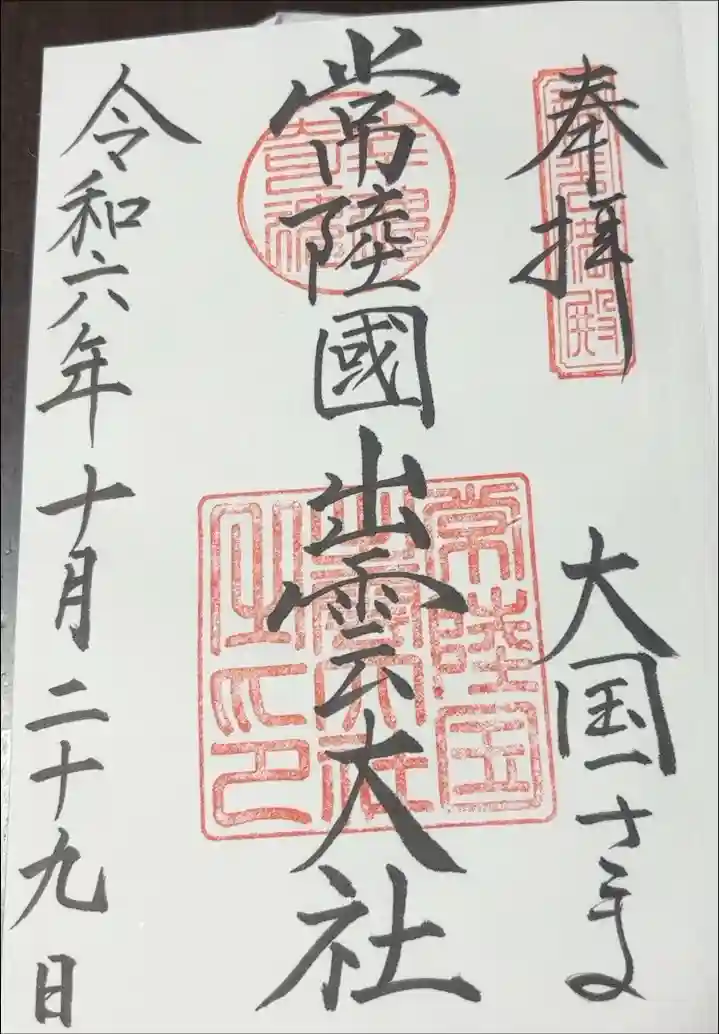 奉拝
大国さま
常陸國出雲大社
常陸国
出雲大社
之印
令和六年十月二十九日